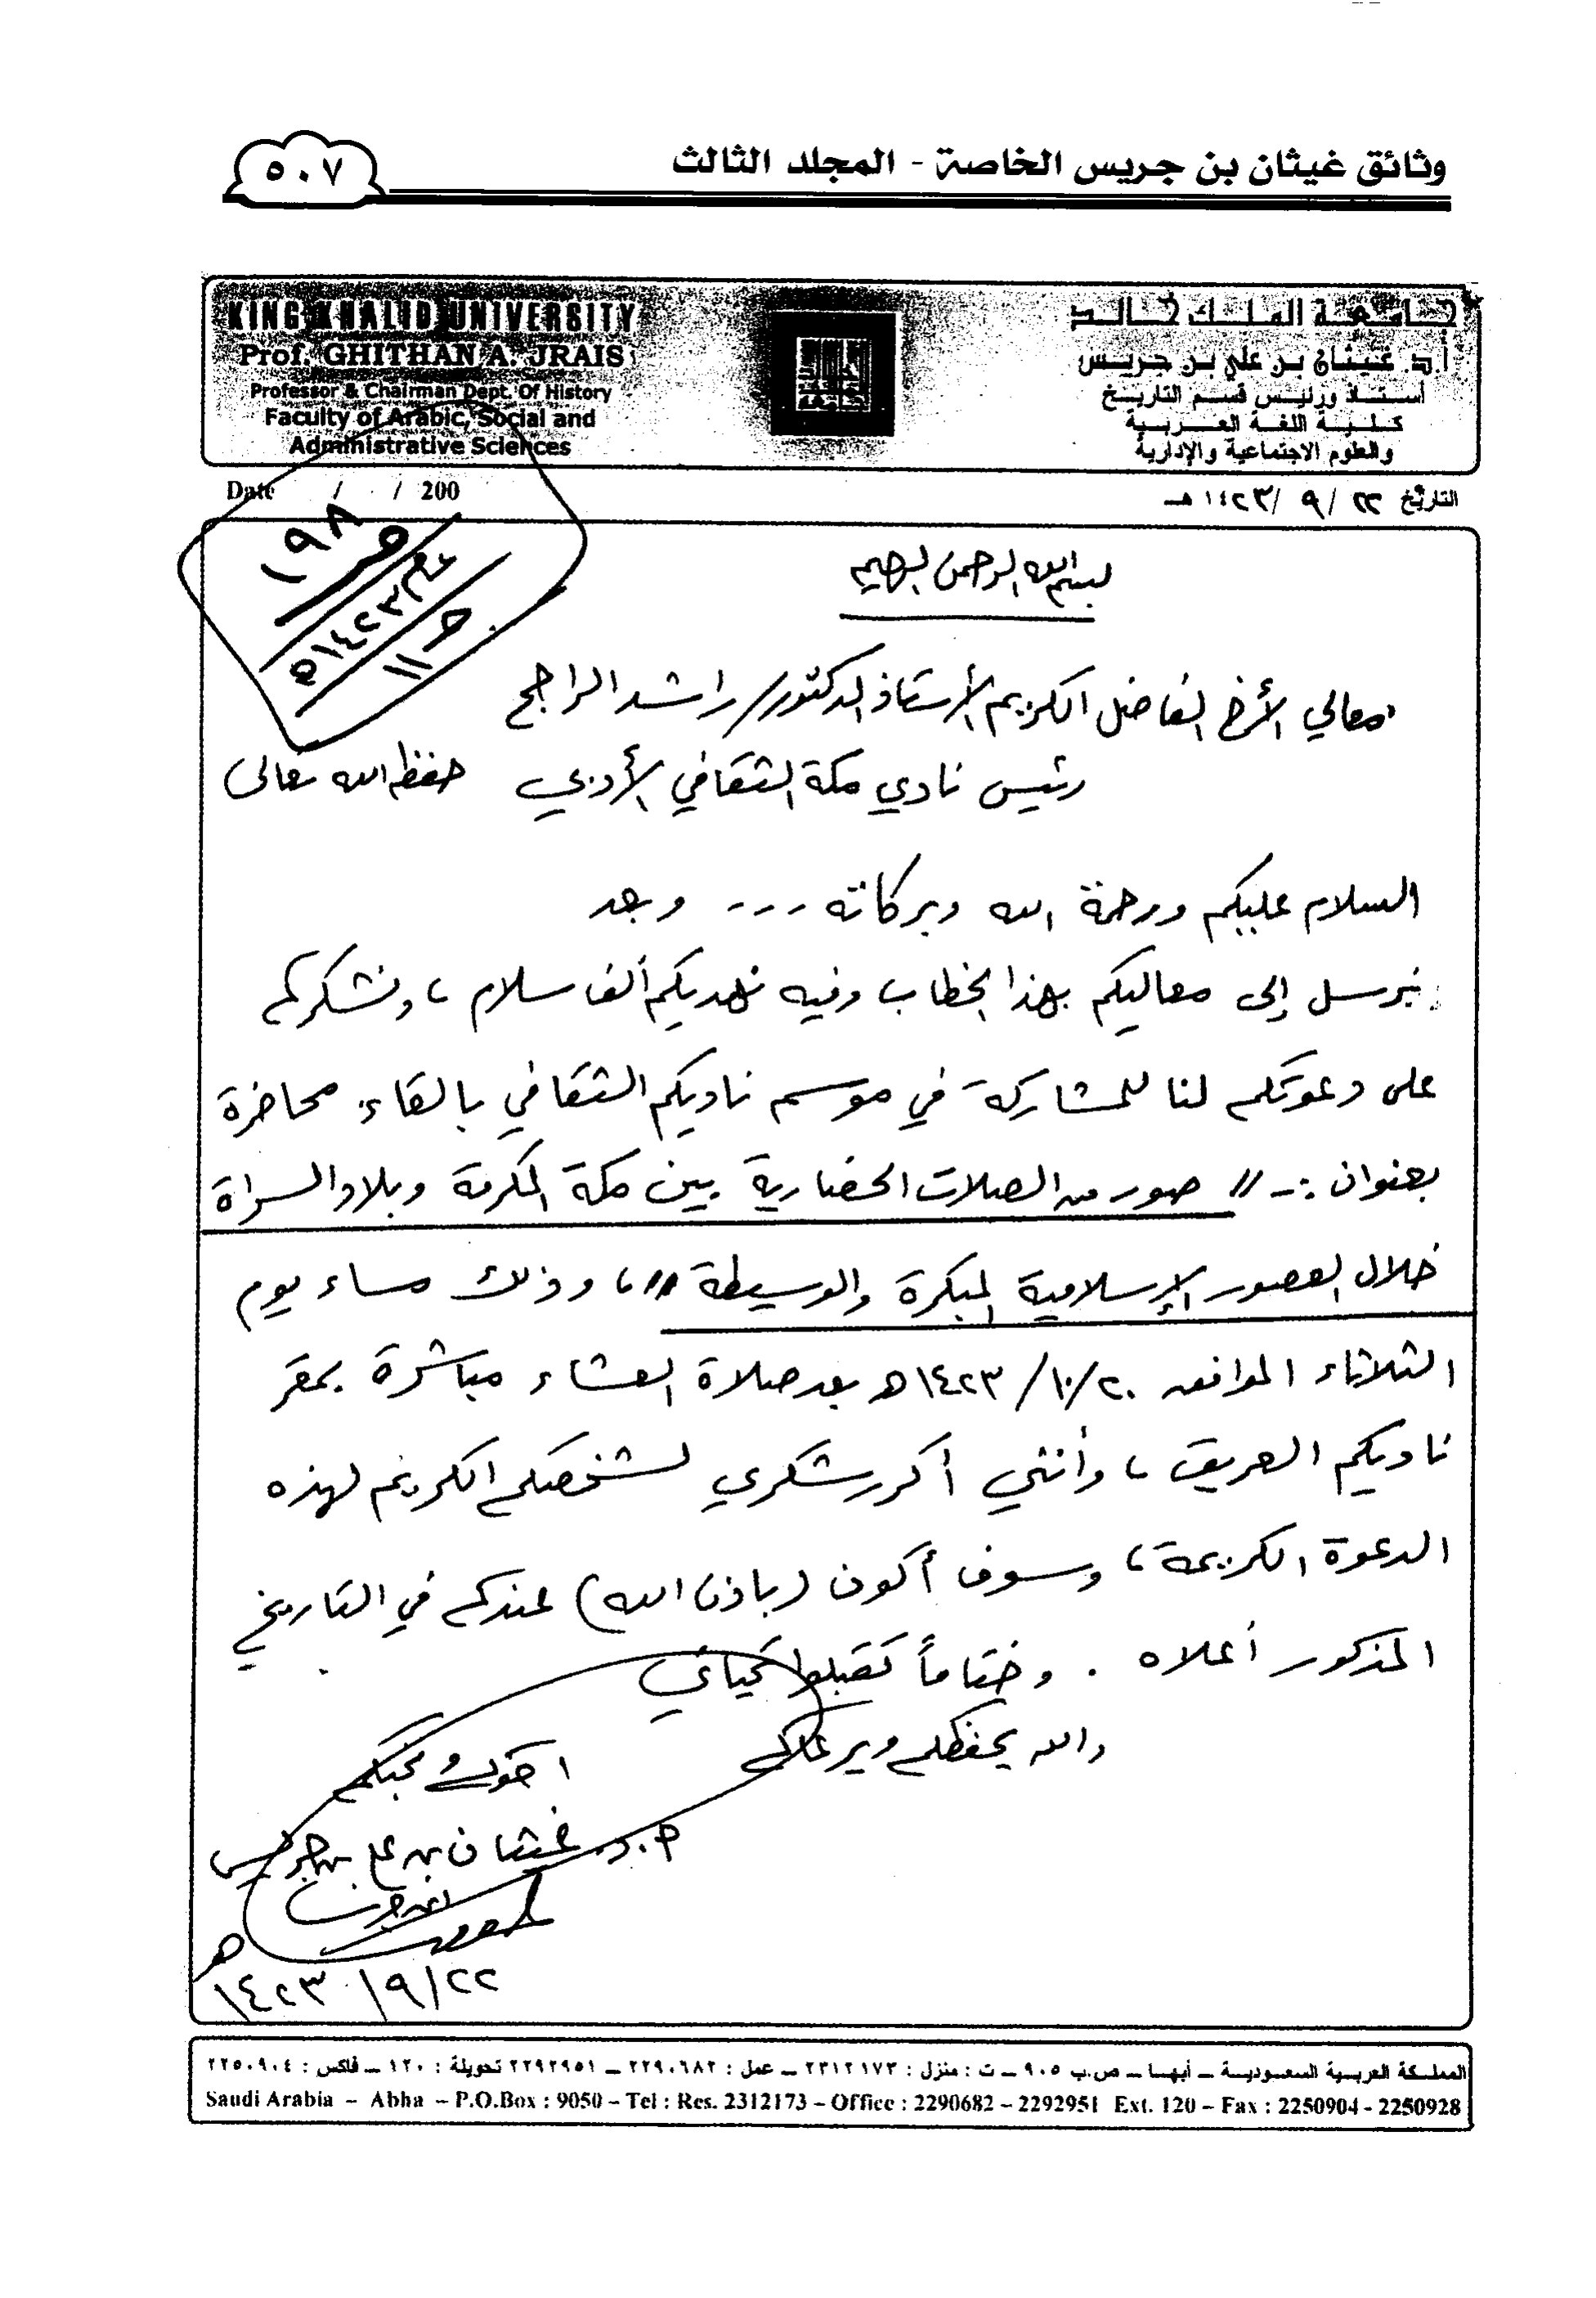 وثائق غيثان بن جريس الخاصة - المجلد الثالث
٥٠٧
KING KHALID UNIVERSITY
Prof. GHITHAN A. JRAIS
Professor & Chairman Dept. Of History
Faculty of Arabic, Social and
Administrative Sciences
جامعة الملك خالد
أ.د. غيثان بن علي بن جريس
أستاذ ورئيس قسم التاريخ
كلية اللغة العربية
والعلوم الاجتماعية والإدارية
Date / / 200
التاريخ ٢٢ / ٩ / ١٤٢٣ هـ
١٩٨
١٤٢٣هـ
بسم الله الرحمن الرحيم
معالي الأخ الفاضل الكريم الأستاذ الدكتور / راشد الراجح
رئيس نادي مكة الثقافي الأدبي حفظه الله تعالى
السلام عليكم ورحمة الله وبركاته --- وبعد
نرسل إلى معاليكم بهذا الخطاب وفيه نهديكم ألف سلام ، ونشكركم
على دعوتكم لنا للمشاركة في موسم ناديكم الثقافي بالقاء محاضرة
بعنوان :- " صور من الصلات الحضارية بين مكة المكرمة وبلاد السراة
خلال العصور الإسلامية المبكرة والوسيطة " ، وذلك مساء يوم
الثلاثاء الموافق ٢٠ / ١٠ / ١٤٢٣ هـ بعد صلاة العشاء مباشرة بمقر
ناديكم العريق ، وأنني أكرر شكري لشخصكم الكريم لهذه
الدعوة الكريمة ، وسوف أكون (باذن الله) عندكم في التاريخ
المذكور أعلاه . وختاماً تقبلوا تحياتي
والله يحفظكم ويرعاكم
اخوكم ومحبكم
أ.د. غيثان بن علي بن جريس
٢٢ / ٩ / ١٤٢٣ هـ
المملكة العربية السعودية – أبها – ص.ب ٩٠٥ – ت : منزل : ٢٣١٢١٧٣ – عمل : ٢٢٩٠٦٨٢ – ٢٢٩٢٩٥١ تحويلة : ١٢٠ – فاكس : ٢٢٥٠٩٠٤
Saudi Arabia – Abha – P.O.Box : 9050 – Tel : Res. 2312173 – Office : 2290682 – 2292951 Ext. 120 – Fax : 2250904 - 2250928